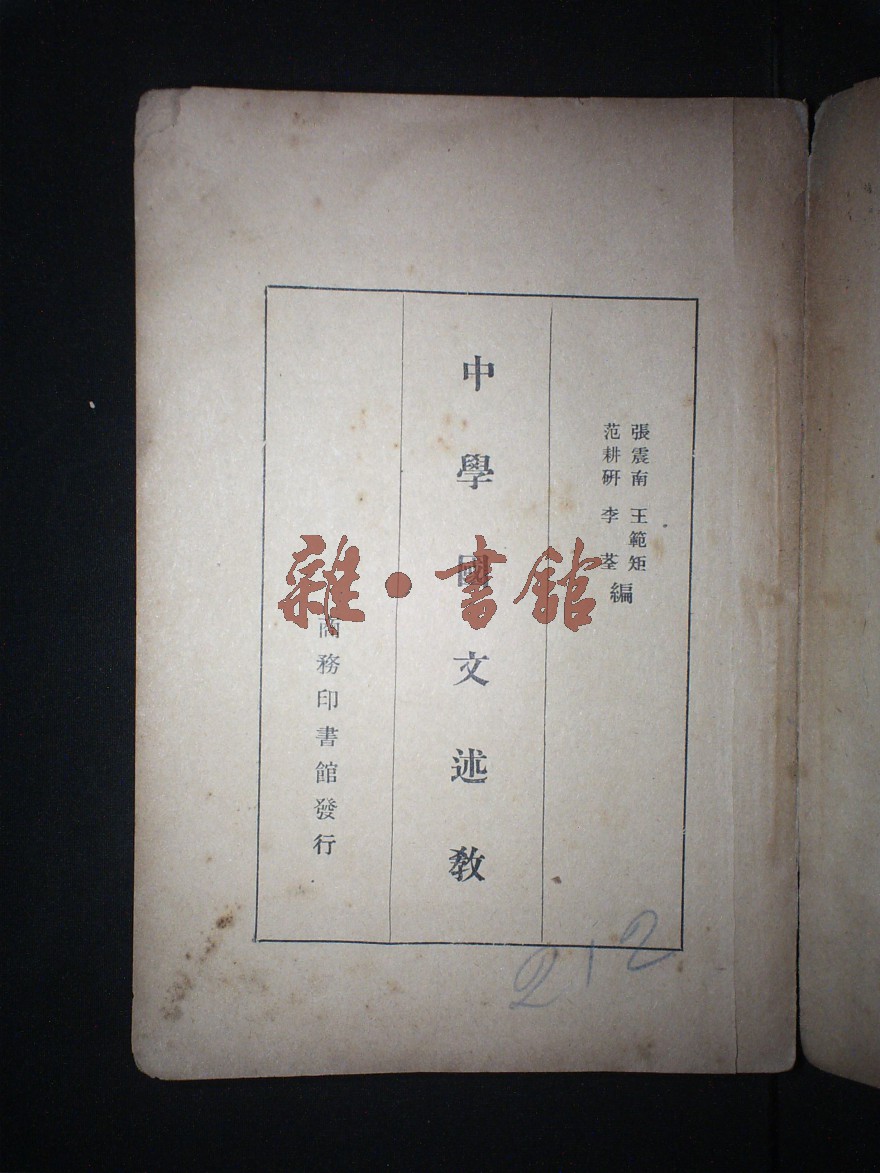 張震南 王範矩
范耕硏 李荃
編
中學國文述教
商務印書館發行
雜·書館
212